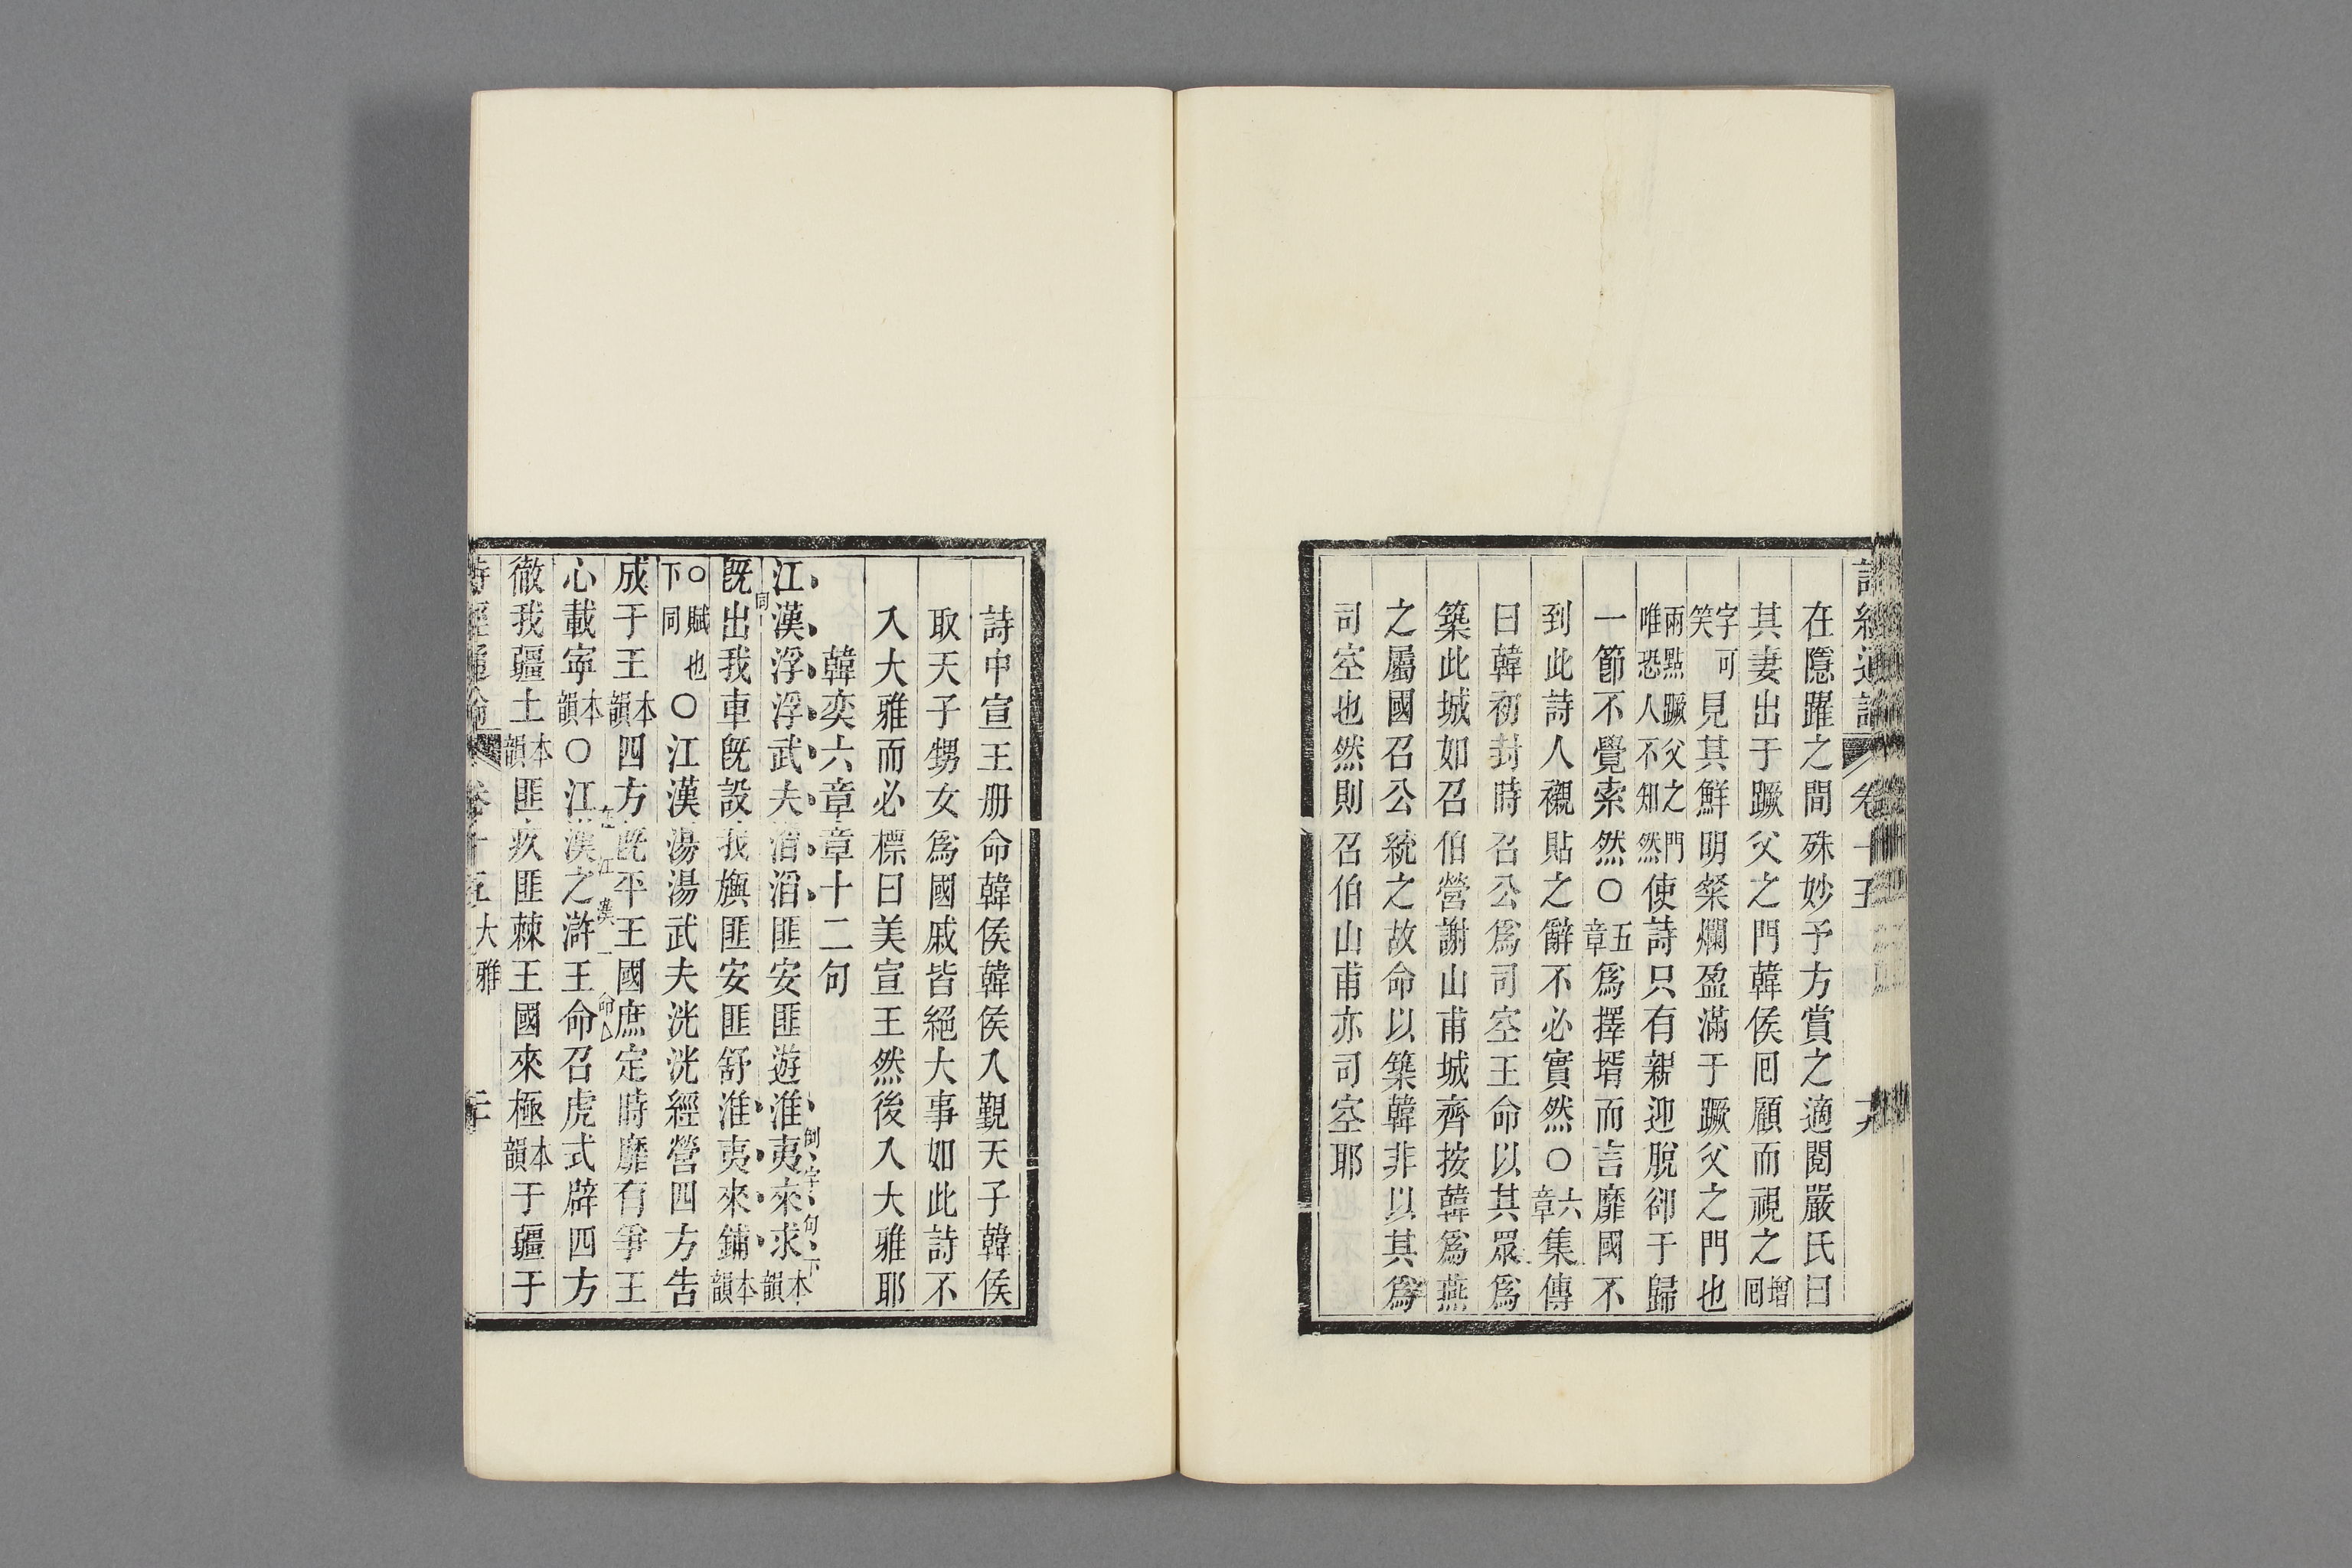 詩經通論 卷十五
在隱躍之間殊妙予方賞之適閱嚴氏曰
其妻出于蹶父之門韓侯囘顧而視之增囘
字可笑見其鮮明粲爛盈滿于蹶父之門也
兩點蹶父之門唯恐人不知然使詩只有親迎脫卻于歸
一節不覺索然〇五章爲擇壻而言靡國不
到此詩人襯貼之辭不必實然〇六章集傳
曰韓初封時召公爲司空王命以其眾爲
築此城如召伯營謝山甫城齊按韓爲燕
之屬國召公統之故命以築韓非以其爲
司空也然則召伯山甫亦司空耶
詩中宣王册命韓侯韓侯入覲天子韓侯
取天子甥女爲國戚皆絕大事如此詩不
入大雅而必標曰美宣王然後入大雅耶
韓奕六章章十二句
江漢浮浮武夫滔滔匪安匪遊淮夷來求本韻
倒字句下同
旣出我車旣設我旟匪安匪舒淮夷來鋪本韻
〇賦也下同〇江漢湯湯武夫洸洸經營四方告
成于王本韻四方旣平王國庶定時靡有爭王
心載寧本韻〇江漢之滸王命召虎式辟四方
徹我疆土本韻匪疚匪棘王國來極本韻于疆于
詩經通論 卷十五大雅 二十